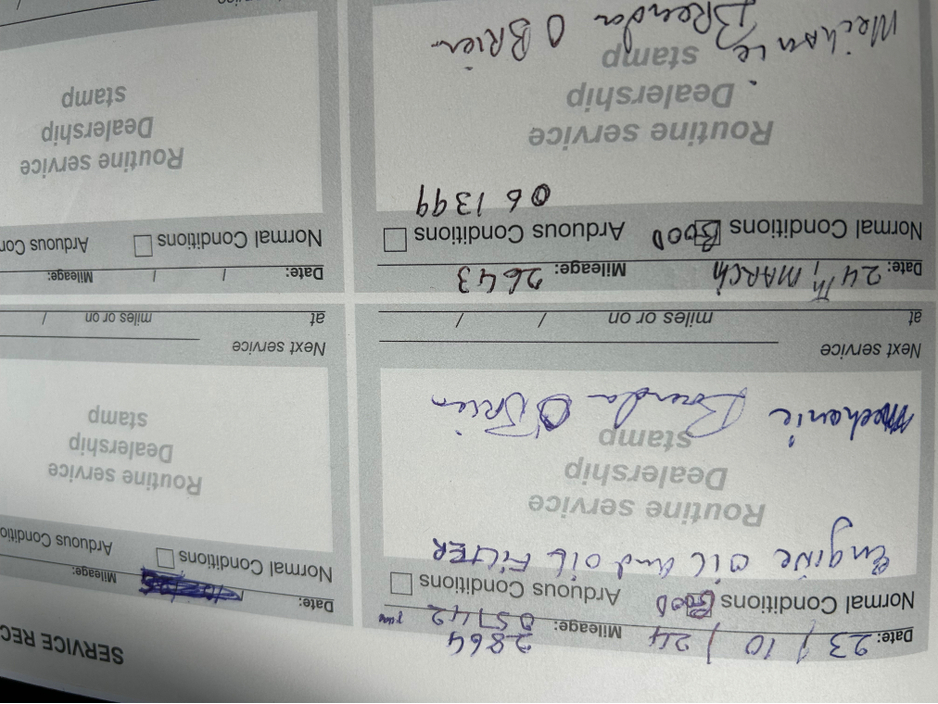 SERVICE REC
Date: 23 / 10 / 24 Mileage: 2864
05742
Normal Conditions GOOD Arduous Conditions
Engine oil and oil FilTER
Routine service
Dealership
stamp
Mechanic Brenda O'Brien
Next service
at miles or on / /
Date: 24Th, MARCH Mileage: 2643
Normal Conditions GOOD Arduous Conditions
061399
Routine service
Dealership
stamp
Mechanic BRenda O BRien
Date: Mileage:
Normal Conditions Arduous Conditio
Routine service
Dealership
stamp
Next service
at miles or on /
Date: / / Mileage:
Normal Conditions Arduous Con
Routine service
Dealership
stamp